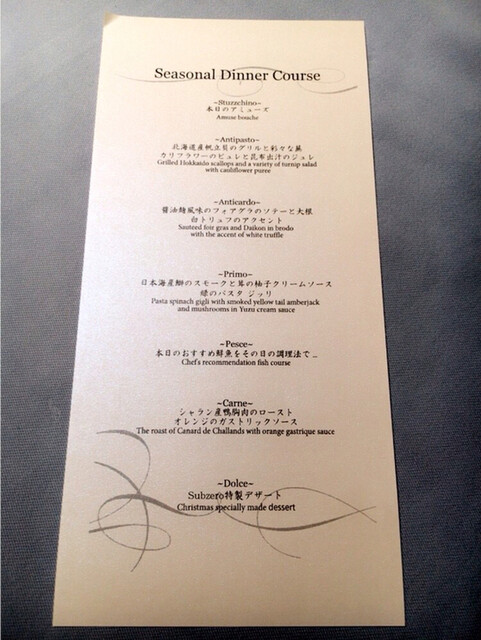 Seasonal Dinner Course
~Stuzzchino~
本日のアミューズ
Amuse bouche
~Antipasto~
北海道産帆立貝のグリルと彩々な蕪
カリフラワーのピュレと昆布出汁のジュレ
Grilled Hokkaido scallops and a variety of turnip salad
with cauliflower puree
~Anticardo~
醤油麹風味のフォアグラのソテーと大根
白トリュフのアクセント
Sauteed foir gras and Daikon in brodo
with the accent of white truffle
~Primo~
日本海産鰤のスモークと茸の柚子クリームソース
緑のパスタ ジッリ
Pasta spinach gigli with smoked yellow tail amberjack
and mushrooms in Yuzu cream sauce
~Pesce~
本日のおすすめ鮮魚をその日の調理法で...
Chef's recommendation fish course
~Carne~
シャラン産鴨胸肉のロースト
オレンジのガストリックソース
The roast of Canard de Challands with orange gastrique sauce
~Dolce~
Subzero特製デザート
Christmas specially made dessert